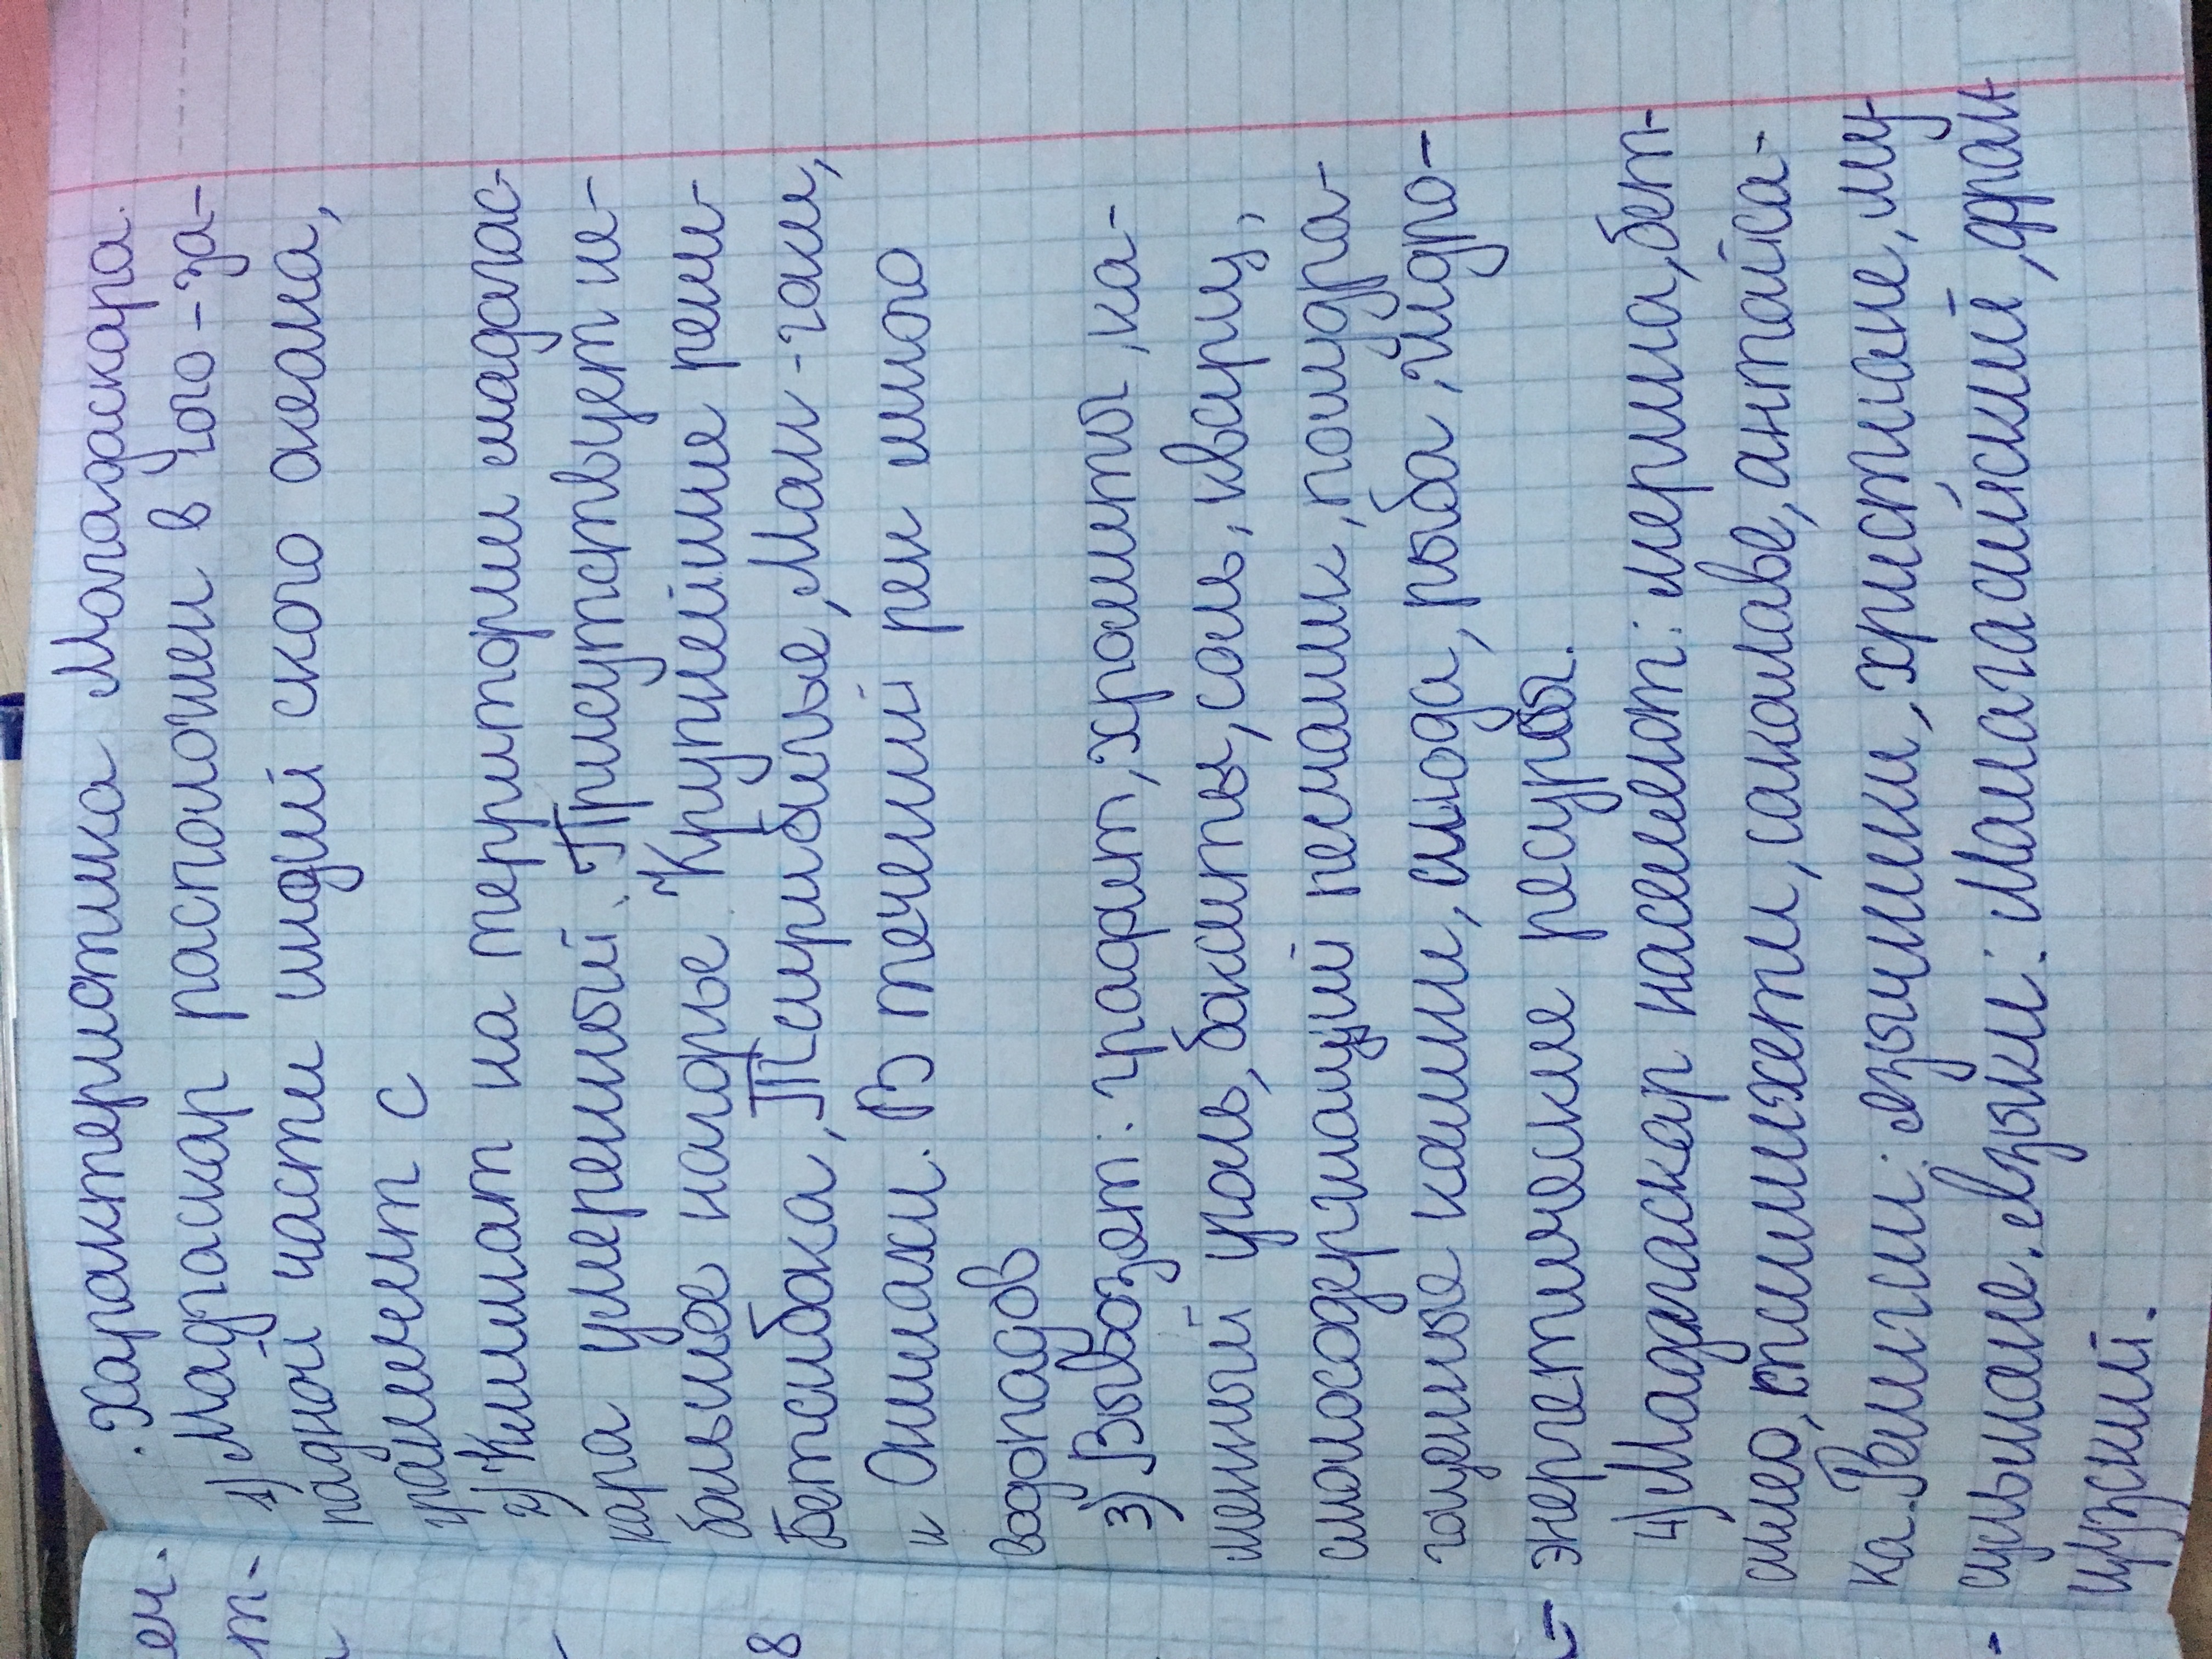 Характеристика Магадаскара.
1) Мадгаскар расположен в Юго-за-
падной части индий ского океана,
граничит с
2) Климат на территории мадагас-
кара умеренный. Присутствует не-
большее нагорье. Крупнейшие реки-
Бетсибака, Тсирибигье, Ман-гоки,
и Онилахи. В течений рек много
водопадов
3) Вывозят: графит, хромиты, ка-
менный уголь, бокситы, соль, кварц,
смолосодержащий песчаник, полудра-
гоценные камни, слюда, рыба, гидро-
энергетические ресурсы.
4) Мадагаскар населяют: мерина, бет-
симео, тсимихети, сакалаве, антайса-
ка. Религии: язычники, христиане, му-
сульмане. языки: Малагасийский, фран
цузский.
ен.
т-
8